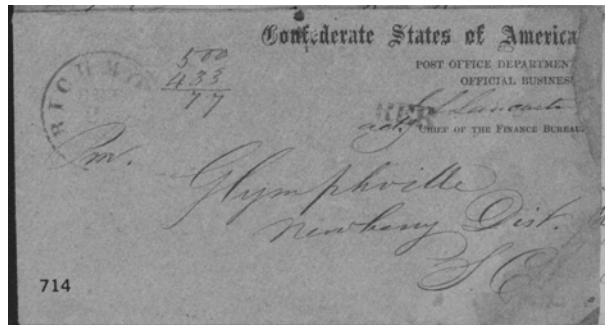 Confederate States of America
POST OFFICE DEPARTMENT
OFFICIAL BUSINESS
Lancaster
actg CHIEF OF THE FINANCE BUREAU
RICHMO
500
433
77
Pm.
Glymphville
Newberry Dist.
S.C.
714